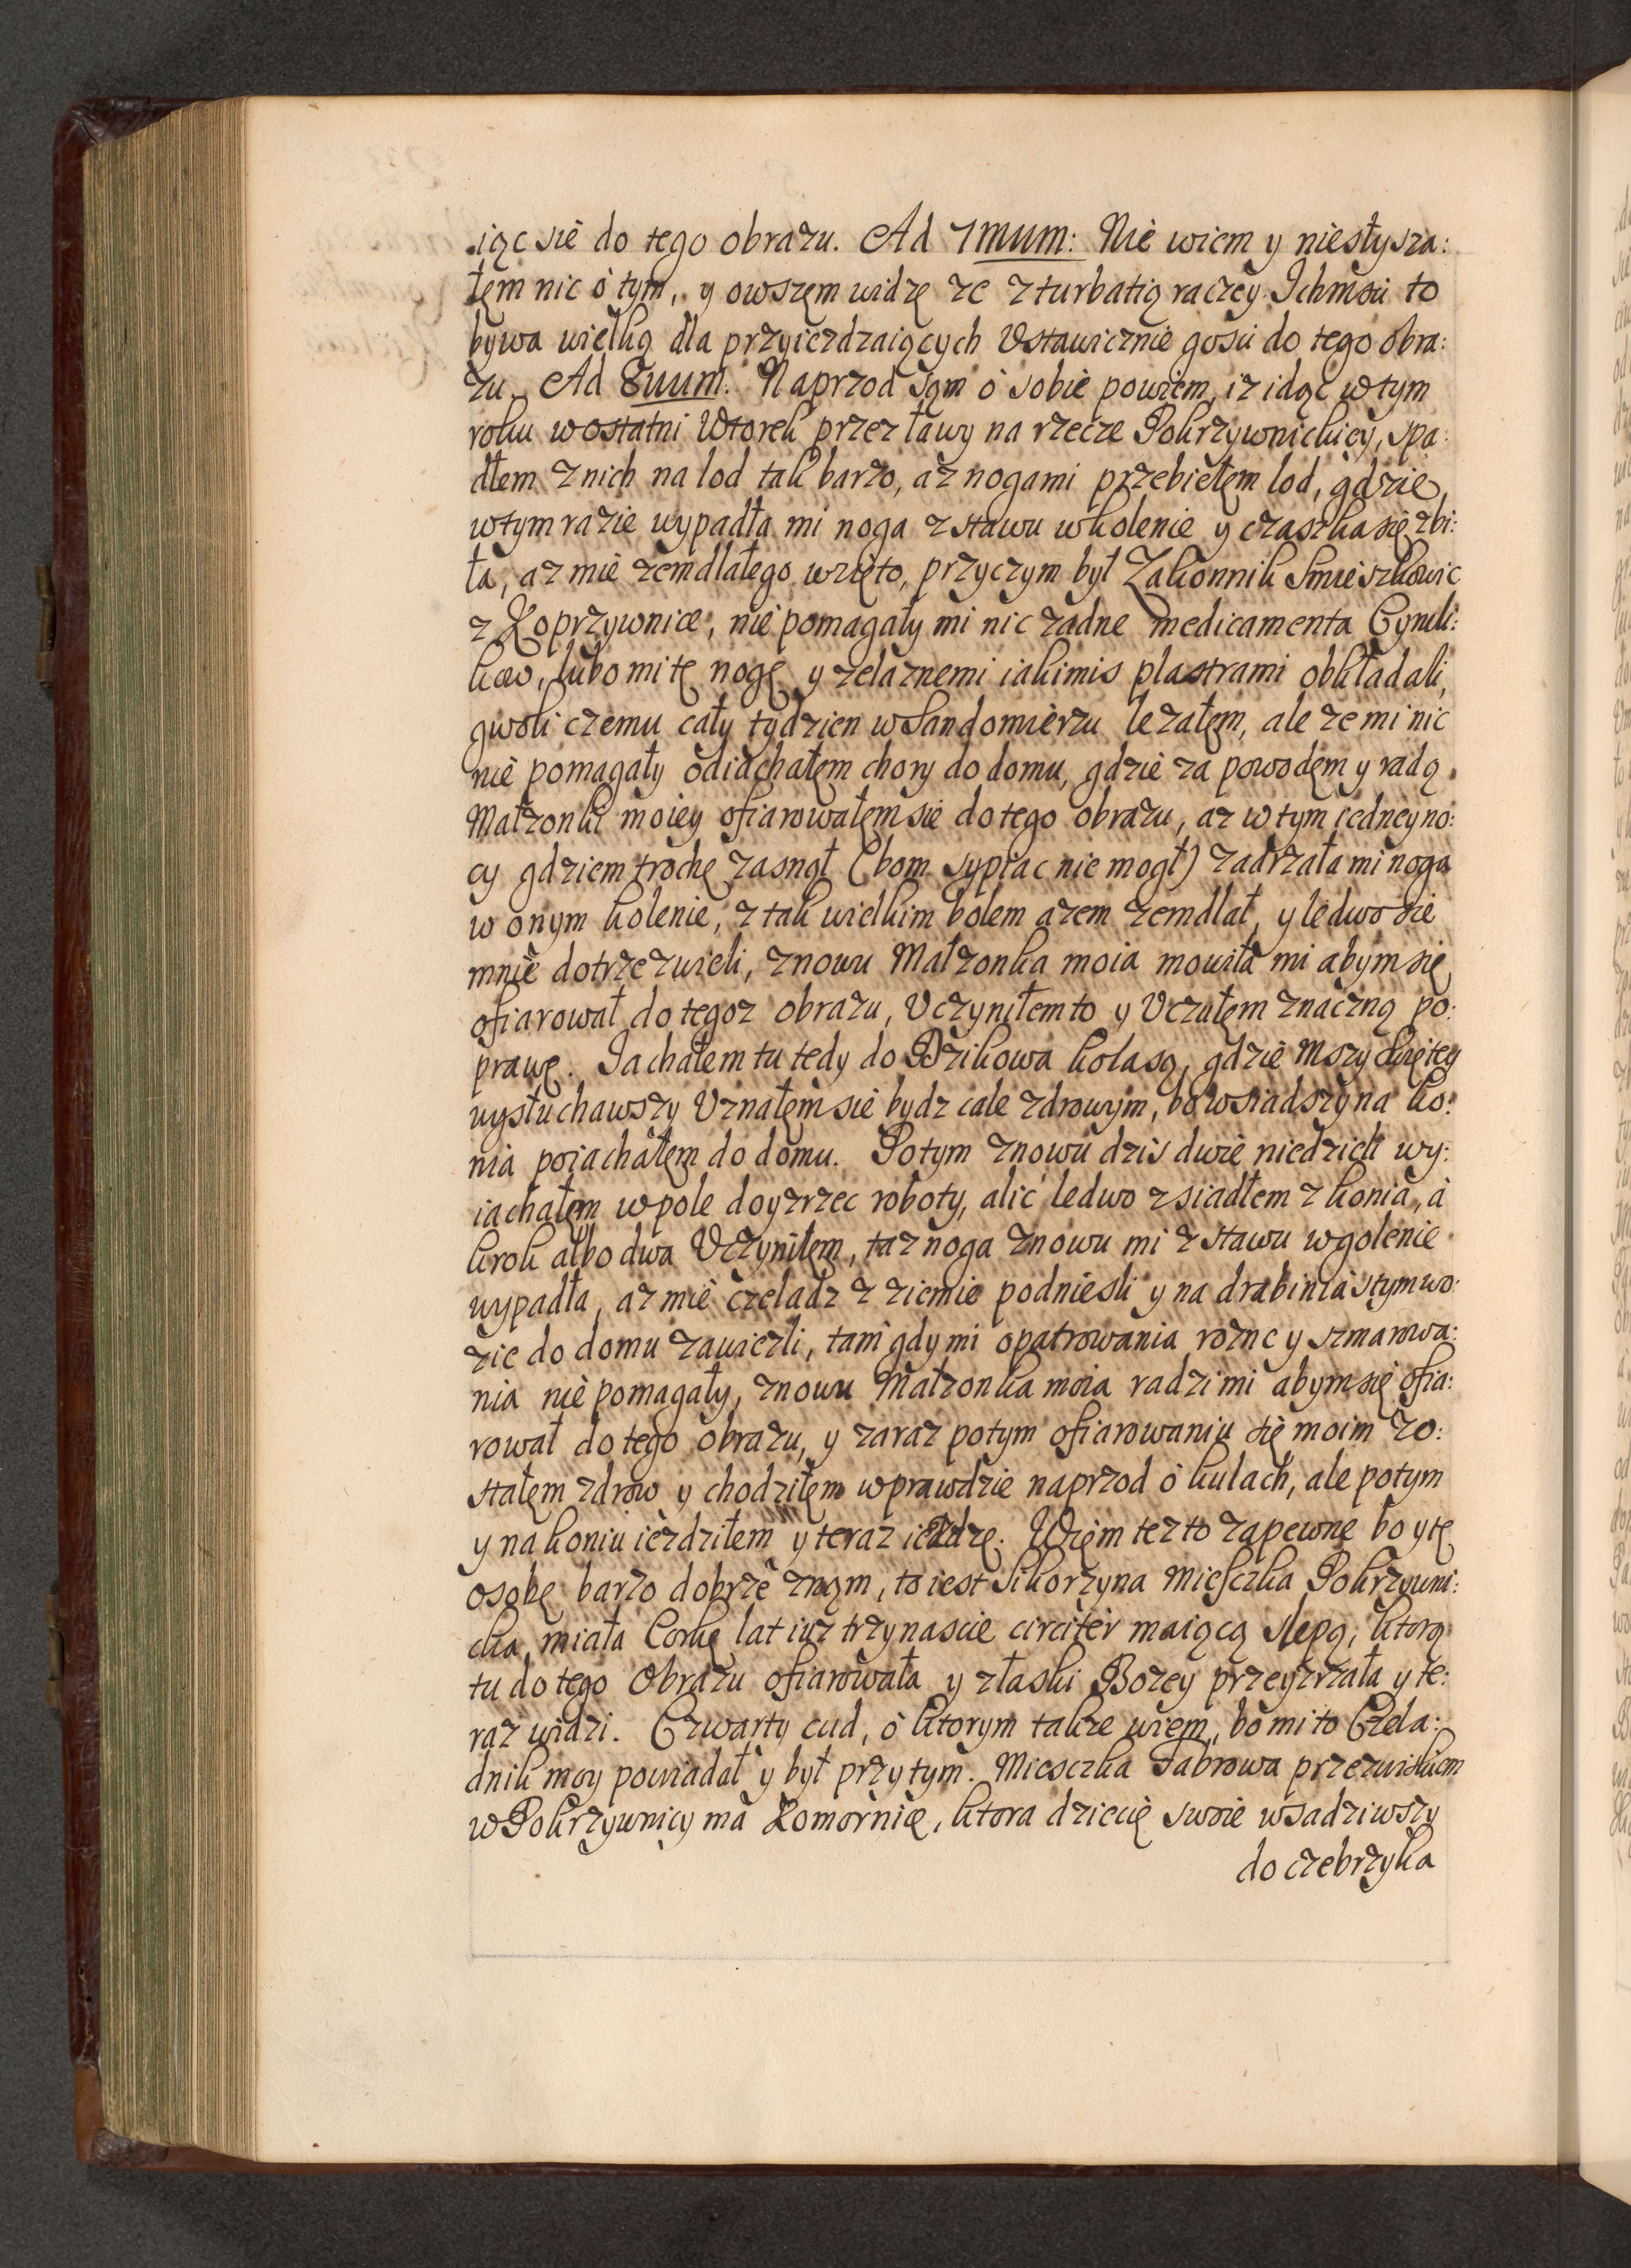 iąc sie do tego obrazu. Ad 7mum: Nie wiem y niesłysza:
łęm nic o tym, y owszęm widzę ze zturbatią raczey Ichmsci to
bywa wielką dla przyiezdzaiących Ustawicznie gosci do tego obra:
zu. Ad 8uum. Naprzod sąm o sobie powiem, iz idąc w tym
roku w ostatni Wtorek przez ławy na rzecze Pokrzywnickiey, spa:
dłem z nich na lod tak barzo, az nogami przebiełęm lod, gdzie,
w tym razie wypadła mi noga z stawu w kolenie y czaszka się zbi:
ła, az mie zemdlałego wzięto, przyczym był Zakonnik Smieszkowic
z Koprzywnice, nie pomagały mi nic zadne medicamenta Cyruli:
kow, lubo mi tę nogę y zelaznemi iakimis plastrami obkładali,
gwoli czemu cały tydzien w Sandomierzu lezałęm, ale ze mi nic
nie pomagały odiachałęm chory do domu, gdzie za powodęm y radą
Małzonki moiey ofiarowałęm sie do tego obrazu, az w tym iedney no:
cy gdziem trochę zasnął (bom sypiac nie mogł) zadrzała mi noga
w onym kolenie, z tak wielkim bolem azem zemdlał, y ledwo sie
mnie dotrzezwieli, znowu Małzonka moia mowiła mi abym się
ofiarował do tegoz obrazu, Uczyniłem to y Uczułęm znaczną po:
prawę. Iachałem tu tedy do Dzikowa kolasą, gdzie Mszy Swiętey
wysłuchawszy Uznałęm sie bydz cale zdrowym, bo wsiadszy na ko:
nia poiachałęm do domu. Potym znowu dzis dwie niedzieli wy:
iachałęm w pole doyzrzec roboty, alić ledwo z siadłem z konia, a
krok albo dwa Uczyniłęm, taz noga znowu mi z stawu w golenie
wypadła, az mie czeladz z ziemie podniesli y na drabiniastym wo:
zie do domu zawiezli, tam gdy mi opatrowania rozne y szmarowa:
nia nie pomagały, znowu Małzonka moia radzi mi abym się ofia:
rował do tego obrazu, y zaraz potym ofiarowaniu się moim zo:
stałęm zdrow y chodziłęm wprawdzie naprzod o kulach, ale potym
y na koniu iezdziłem y teraz iezdzę. Więm tez to zapewne bo y tę
osobę barzo dobrze znąm, to iest Sikorzyna Miesczka Pokrzywni:
cka, miała Corkę lat iuz trzynascie circiter maiącą slepą, ktorą
tu do tego Obrazu ofiarowała y z łaski Bozey przeyzrzała y te:
raz widzi. Czwarty cud, o ktorym takze wiem, bo mi to Czela:
dnik moy powiadał y był przy tym. Miesczka Fabrowa przezwiskiem
w Pokrzywnicy ma Komornicę, ktora dziecię swoie wsadziwszy
do czebrzyka